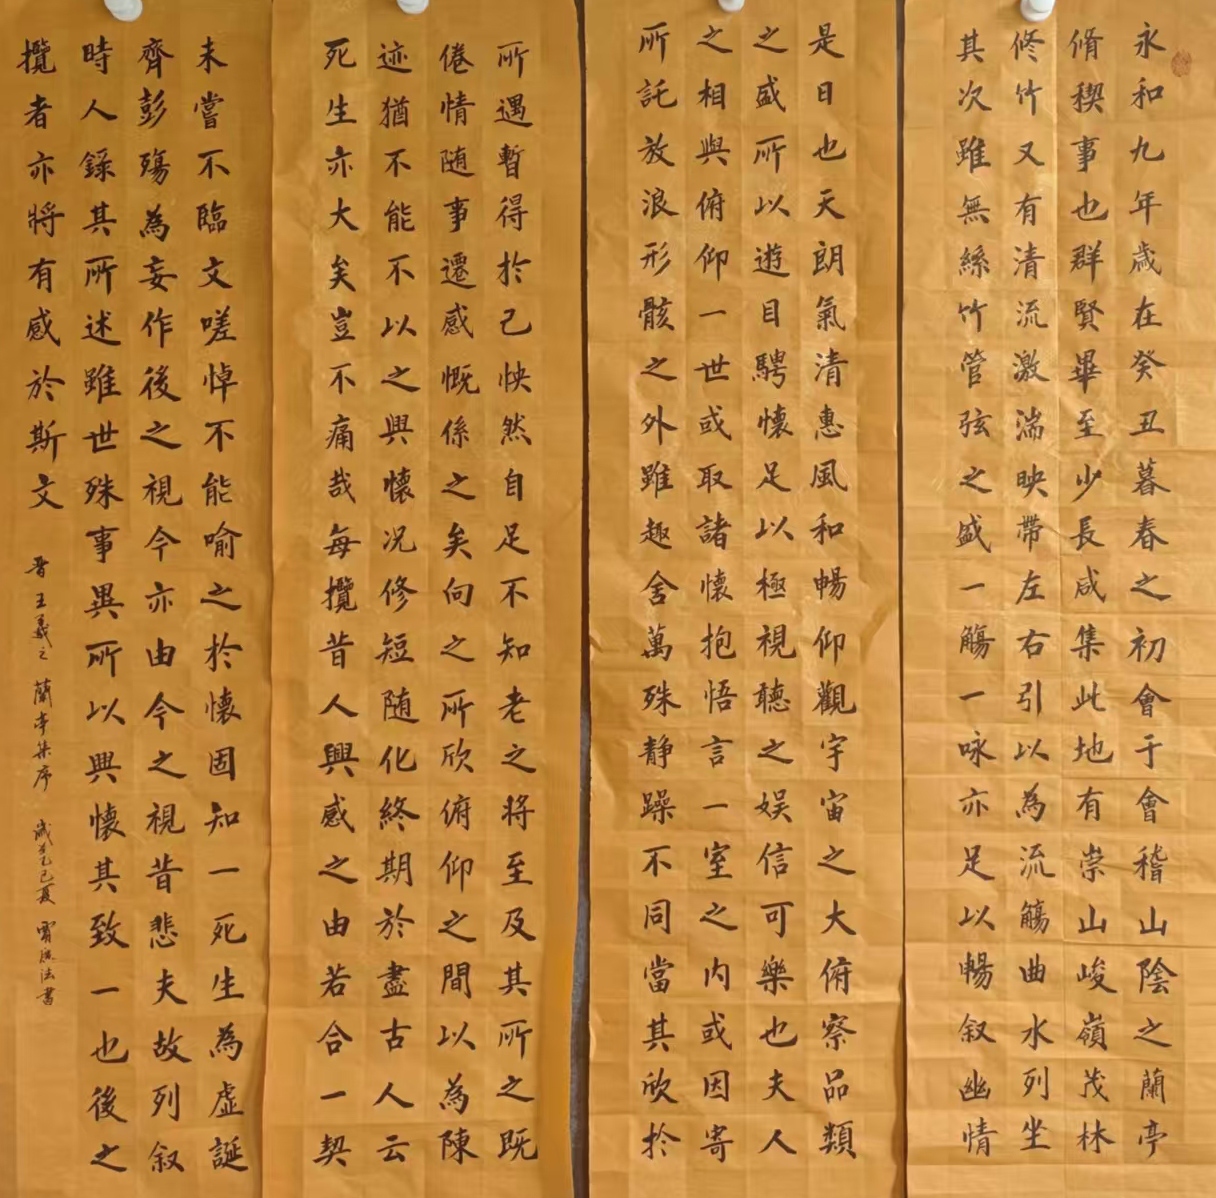 永和九年歲在癸丑暮春之初會于會稽山陰之蘭亭
脩稧事也群賢畢至少長咸集此地有崇山峻嶺茂林
修竹又有清流激湍映帶左右引以為流觴曲水列坐
其次雖無絲竹管弦之盛一觴一咏亦足以暢叙幽情
是日也天朗氣清惠風和暢仰觀宇宙之大俯察品類
之盛所以遊目騁懷足以極視聽之娱信可樂也夫人
之相與俯仰一世或取諸懷抱悟言一室之内或因寄
所託放浪形骸之外雖趣舍萬殊静躁不同當其欣於
所遇暫得於己怏然自足不知老之將至及其所之既
倦情随事遷感慨係之矣向之所欣俯仰之間以為陳
迹猶不能不以之興懷况修短随化終期於盡古人云
死生亦大矣豈不痛哉每攬昔人興感之由若合一契
未嘗不臨文嗟悼不能喻之於懷固知一死生為虛誕
齊彭殤為妄作後之視今亦由今之視昔悲夫故列叙
時人錄其所述雖世殊事異所以興懷其致一也後之
攬者亦將有感於斯文 晋王羲之蘭亭集序 歲在乙巳夏 法書